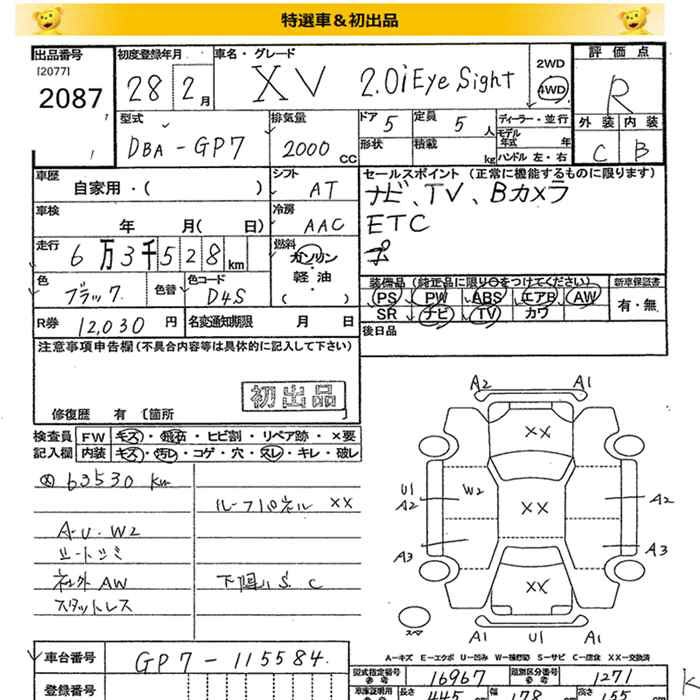 特選車＆初出品
出品番号
[2077]
2087
初度登録年月
28 2月
車名・グレード
XV 2.0i Eye Sight
2WD
4WD
評価点
R
型式
DBA-GP7
排気量
2000 CC
ドア 5
定員 5 人
形状
積載 kg
ディーラー・並行
モデル年式 年
ハンドル 左・右
外装 内装
C B
車歴
自家用・( )
シフト
AT
セールスポイント (正常に機能するものに限ります)
ナビ、TV、Bカメラ
ETC
車検
年 月( 日)
冷房
AAC
走行
6万3千528km
燃料
ガソリン
軽油
( )
色
ブラック
色替
色コード
D4S
装備品 (純正品に限り○をつけてください)
PS PW ABS エアB AW
SR ナビ TV カワ
新車保証書
有・無
R券 12,030 円
名変通知期限 月 日
後日品
注意事項申告欄(不具合内容等は具体的に記入して下さい)
初出品
修復歴 有 〔箇所
検査員記入欄
FW キズ・飛石・ヒビ割・リペア跡・×要
内装 キズ・汚レ・コゲ・穴・スレ・キレ・破レ
63530 km
ルーフパネル XX
A・U・W2
シートシミ
社外AW
下廻りS.C
スタットレス
A2 A1
XX
U1
A2
W2
XX
A2
A3
A3
XX
スペア
A1 U1 A1
A-キズ E-エクボ U-凹み W-補修跡 S-サビ C-腐食 XX-交換済
車台番号 GP7-115584
登録番号
型式指定番号 16967
類別区分番号 1271
車庫証明用参考
長さ 445
幅 178
高さ 155
cm